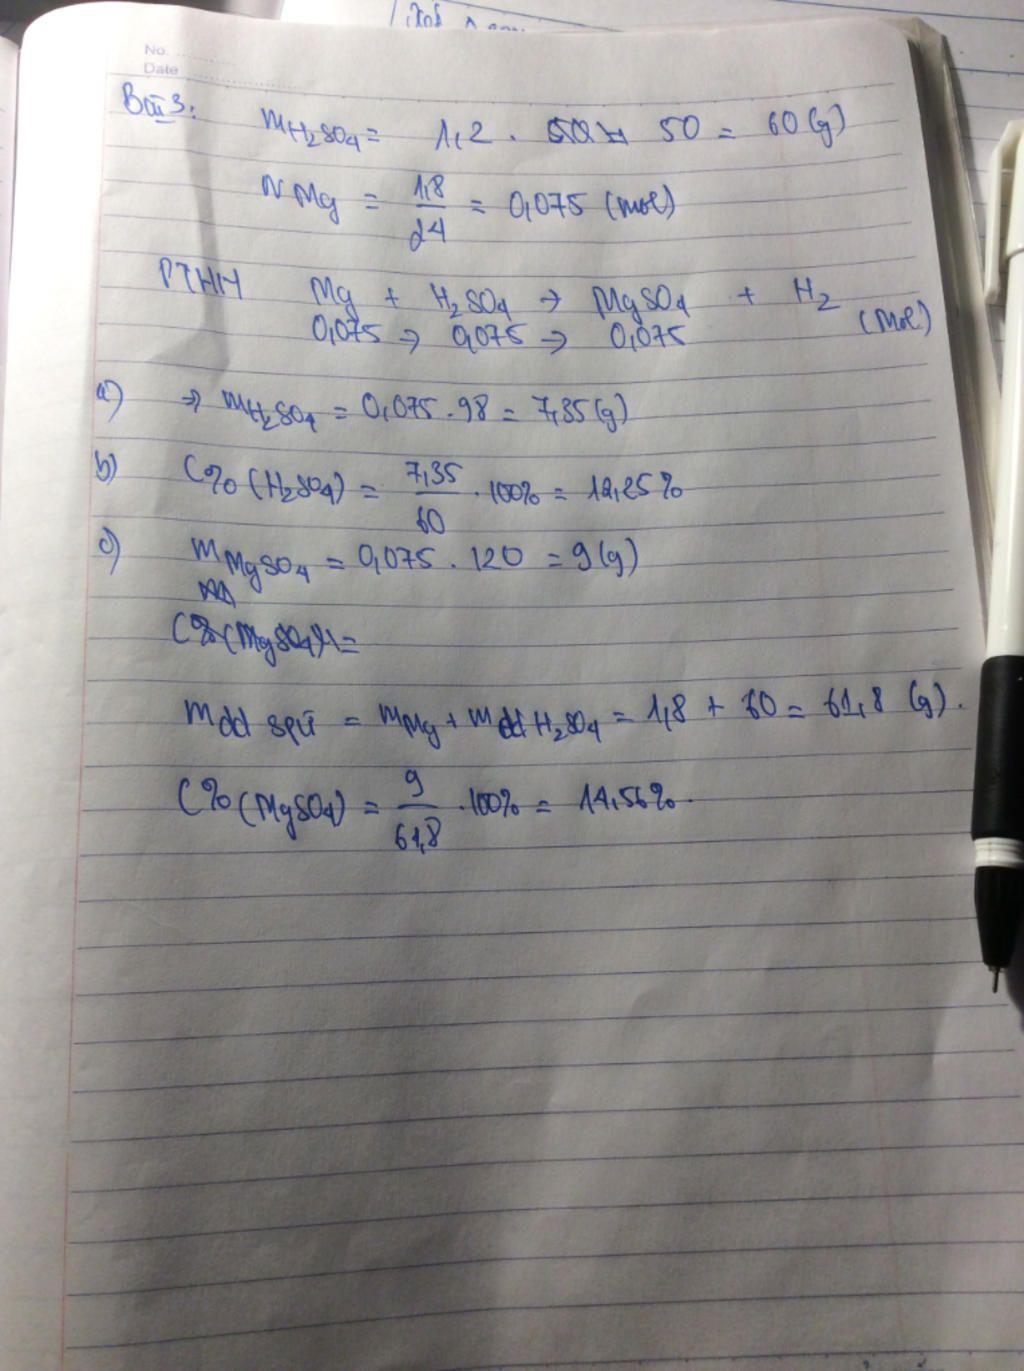 No.
Date
Bài 3:
mH₂SO₄ = 1,2 . 50 = 60 (g)
nMg = 1,8/24 = 0,075 (mol)
PTHH Mg + H₂SO₄ → MgSO₄ + H₂
0,075 → 0,075 → 0,075 (mol)
a) → mH₂SO₄ = 0,075 . 98 = 7,35 (g)
b) C% (H₂SO₄) = 7,35/60 . 100% = 12,25%
c) mMgSO₄ = 0,075 . 120 = 9 (g)
C% (MgSO₄) =
mdd spứ = mMg + mdd H₂SO₄ = 1,8 + 60 = 61,8 (g).
C% (MgSO₄) = 9/61,8 . 100% = 14,56%.